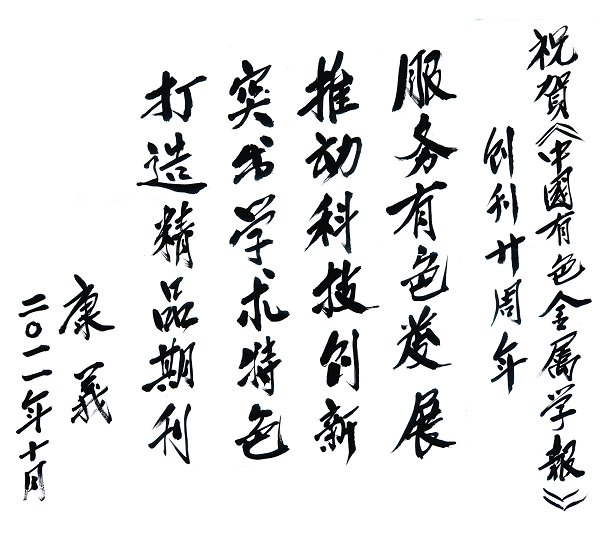 祝賀《中國有色金属学報》
创刊廿周年
服务有色发展
推动科技创新
突出学术特色
打造精品期刊
康義
二〇一一年十月